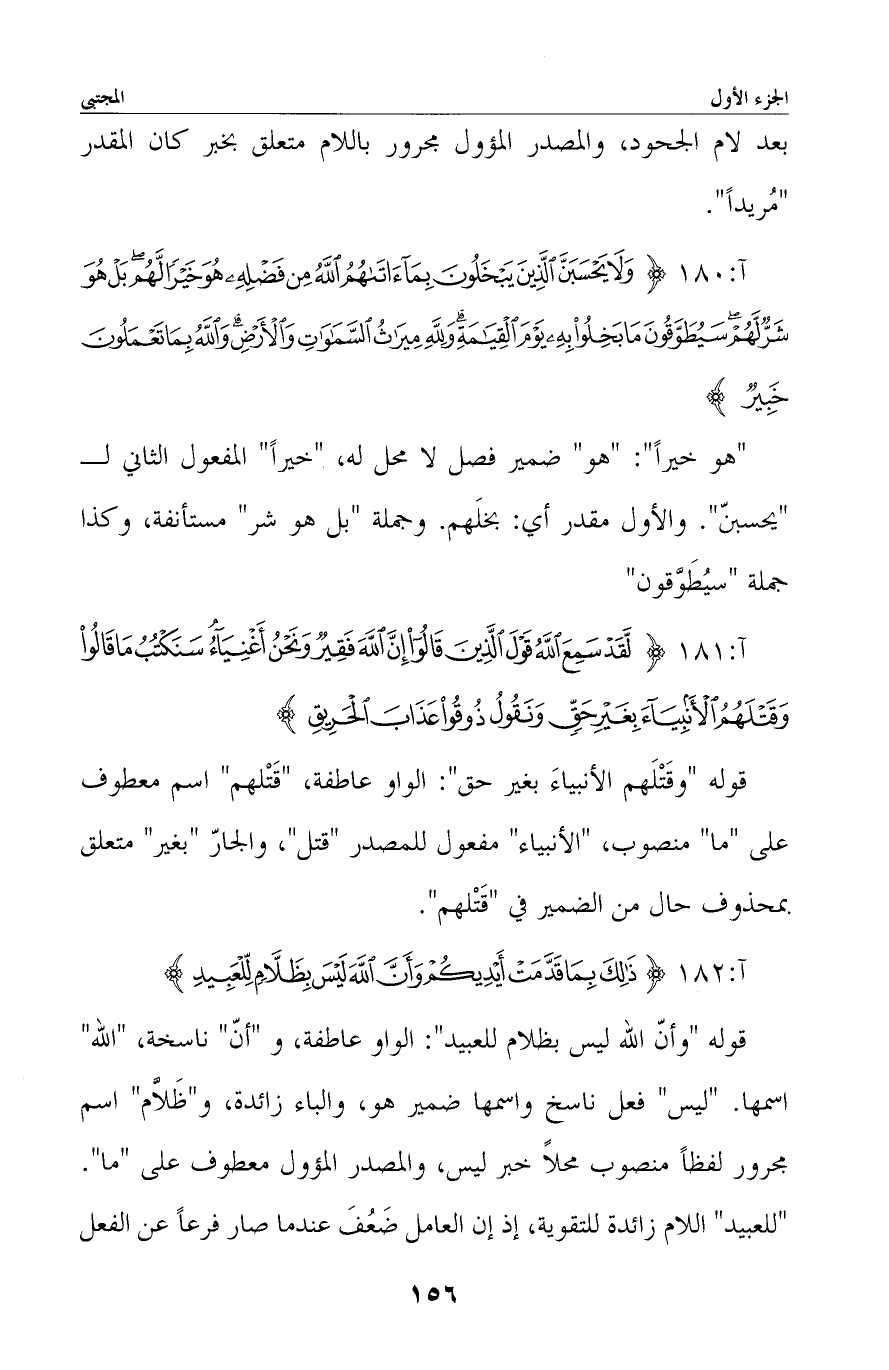 الجزء الأول المجتبى
بعد لام الجحود، والمصدر المؤول مجرور باللام متعلق بخبر كان المقدر
"مُريداً".
آ:١٨٠ ﴿ وَلَا يَحْسَبَنَّ ٱلَّذِينَ يَبْخَلُونَ بِمَآ ءَاتَىٰهُمُ ٱللَّهُ مِن فَضْلِهِۦ هُوَ خَيْرًا لَّهُم ۖ بَلْ هُوَ
شَرٌّ لَّهُمْ ۖ سَيُطَوَّقُونَ مَا بَخِلُوا۟ بِهِۦ يَوْمَ ٱلْقِيَٰمَةِ ۗ وَلِلَّهِ مِيرَٰثُ ٱلسَّمَٰوَٰتِ وَٱلْأَرْضِ ۗ وَٱللَّهُ بِمَا تَعْمَلُونَ
خَبِيرٌ ﴾
"هو خيراً": "هو" ضمير فصل لا محل له، "خيراً" المفعول الثاني لـــ
"يحسبنّ". والأول مقدر أي: بخلَهم. وجملة "بل هو شر" مستأنفة، وكذا
جملة "سيُطَوَّقون"
آ:١٨١ ﴿ لَّقَدْ سَمِعَ ٱللَّهُ قَوْلَ ٱلَّذِينَ قَالُوٓا۟ إِنَّ ٱللَّهَ فَقِيرٌ وَنَحْنُ أَغْنِيَآءُ ۘ سَنَكْتُبُ مَا قَالُوا۟
وَقَتْلَهُمُ ٱلْأَنۢبِيَآءَ بِغَيْرِ حَقٍّ وَنَقُولُ ذُوقُوا۟ عَذَابَ ٱلْحَرِيقِ ﴾
قوله "وقَتْلَهم الأنبياءَ بغير حق": الواو عاطفة، "قَتْلهم" اسم معطوف
على "ما" منصوب، "الأنبياء" مفعول للمصدر "قتل"، والجارّ "بغير" متعلق
بمحذوف حال من الضمير في "قَتْلهم".
آ:١٨٢ ﴿ ذَٰلِكَ بِمَا قَدَّمَتْ أَيْدِيكُمْ وَأَنَّ ٱللَّهَ لَيْسَ بِظَلَّامٍ لِّلْعَبِيدِ ﴾
قوله "وأنّ الله ليس بظلام للعبيد": الواو عاطفة، و "أنّ" ناسخة، "الله"
اسمها. "ليس" فعل ناسخ واسمها ضمير هو، والباء زائدة، و"ظَلاَّم" اسم
مجرور لفظاً منصوب محلاً خبر ليس، والمصدر المؤول معطوف على "ما".
"للعبيد" اللام زائدة للتقوية، إذ إن العامل ضَعُفَ عندما صار فرعاً عن الفعل
١٥٦